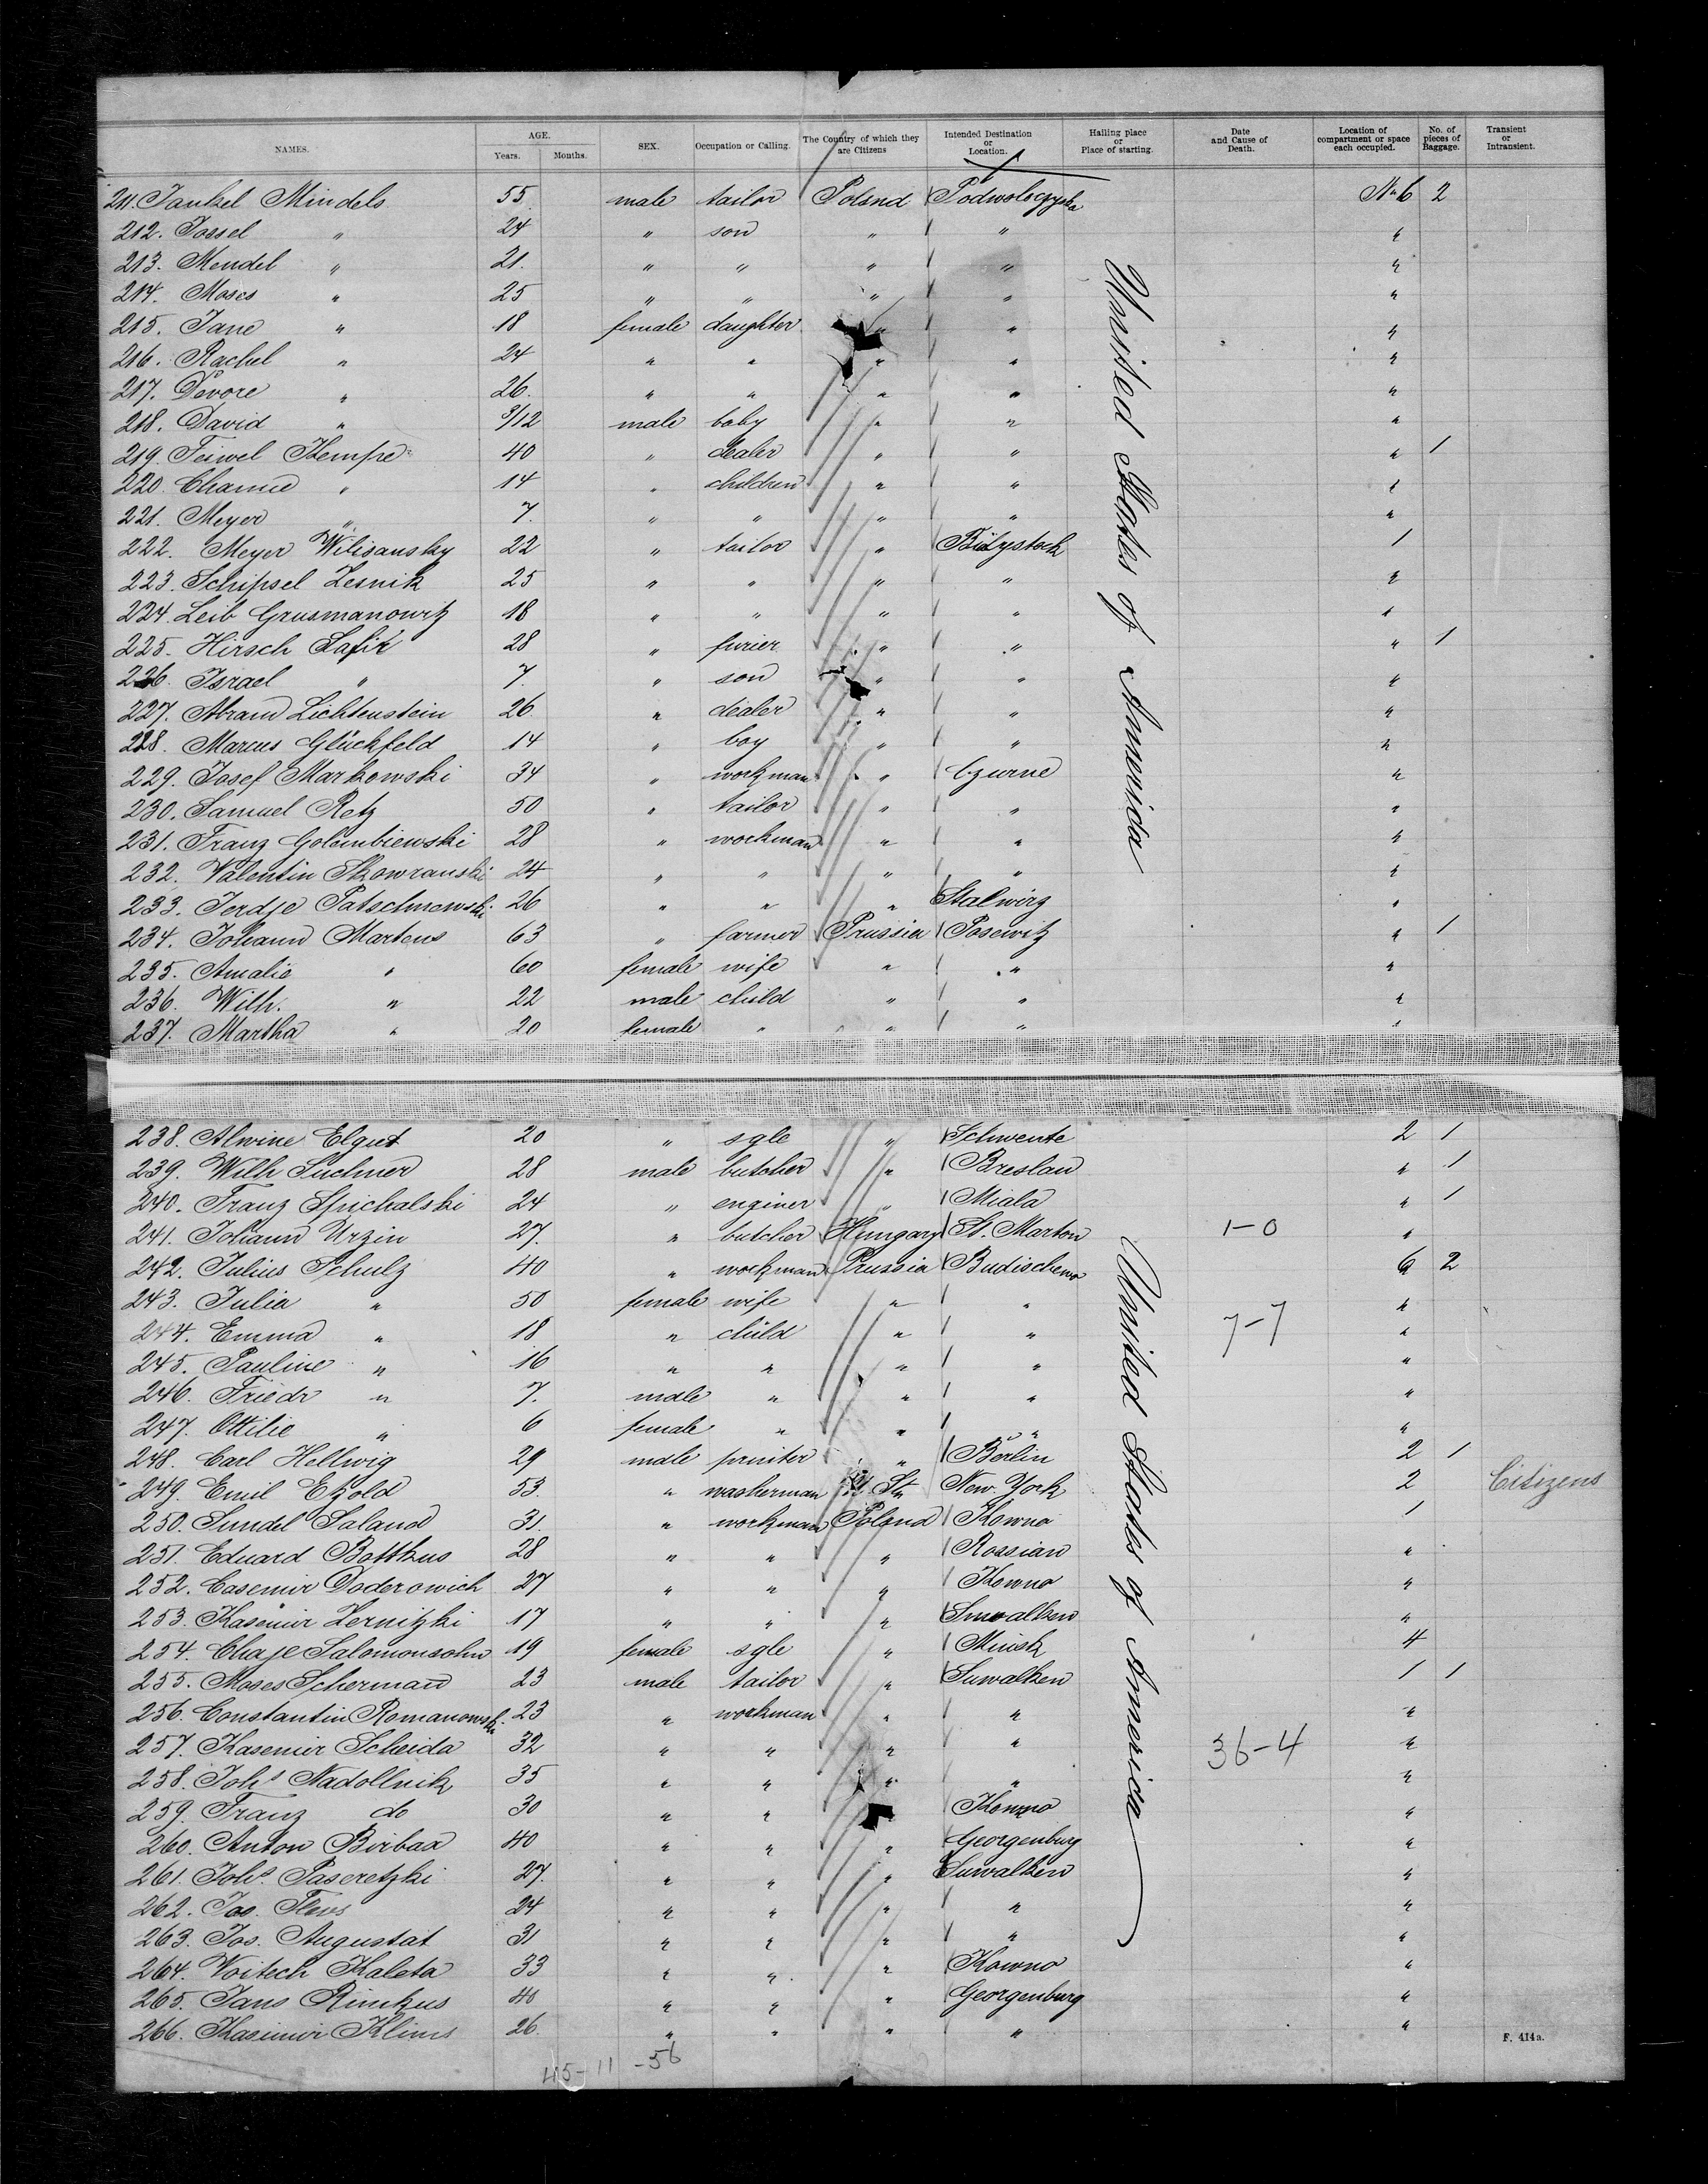 NAMES. AGE. Years. Months. SEX. Occupation or Calling. The Country of which they are Citizens Intended Destination or Location. Hailing place or Place of starting. Date and Cause of Death. Location of compartment or space each occupied. No. of pieces of Baggage. Transient or Intransient.
211. Jankel Mindels 55 male tailor Poland Podwologyska No 6 2
212. Jossel " 24 " son " " "
213. Mendel " 21. " " " " "
214. Moses " 25 " " " " "
215. Jane " 18 female daughter " " "
216. Rachel " 24 " " " " "
217. Devore " 26. " " " " "
218. David " 9/12 male baby " " "
219. Feiwel Kempe 40 " dealer " " " 1
220. Channe " 14 " children " " "
221. Meyer " 7. " " " " "
222. Meyer Wilisansky 22 " tailor " Bialystock 1
223. Schipsel Lesnik 25 " " " " "
224. Leib Grusmanowitz 18 " " " " "
225. Hirsch Safir 28 " furier " " " 1
226. Israel " 7. " son " " "
227. Abram Lichtenstein 26 " dealer " " "
228. Marcus Glückfeld 14 " boy " " "
229. Josef Markowski 34 " workman " Czurne "
230. Samuel Retz 50 " tailor " " "
231. Franz Golombiewski 28 " workman " " "
232. Valentin Skowranski 24 " " " " "
233. Ferdje Patschmowski 26 " " " Stalwirz "
234. Johann Martens 63 " farmer Prussia Posewitz " 1
235. Amalie " 60 female wife " " "
236. Wilh. " 22 male child " " "
237. Martha " 20 female " " " "
United States of America
238. Alwine Elgut 20 " sgle " Schwente 2 1
239. Wilh Suchner 28 male butcher " Breslau " 1
240. Franz Spichalski 24 " enginer " Miala " 1
241. Johann Urzin 27. " butcher Hungary St. Marton 1-0 "
242. Julius Schulz 40 " workman Prussia Budischewo 6 2
243. Julia " 50 female wife " " "
244. Emma " 18 " child " " 7-7 "
245. Pauline " 16 " " " " "
246. Friedr " 7. male " " " "
247. Ottilie " 6 female " " " "
248. Carl Hellwig 29 male printer " Berlin 2 1
249. Emil Etzold 53. " washerman U. St. New. York 2 Citizens
250. Sundel Saland 31. " workman Poland Kowno 1
251. Eduard Botthus 28 " " " Rossian "
252. Casemir Doderowich 27 " " " Kowno "
253. Kasemir Zernitzki 17 " " " Suwalken "
254. Chaje Salomonsohn 19 female sgle " Minsk 4
255. Moses Scherman 23 male tailor " Suwalken 1 1
256. Constantin Romanowski 23 " workman " " "
257. Kasemir Scheida 32 " " " " 36-4 "
258. Johs Nadollnik 35 " " " " "
259. Franz do 30 " " " Kowno "
260. Anton Birbax 40 " " " Georgenburg "
261. Johs. Paseretzki 27. " " " Suwalken "
262. Jos. Flews 24 " " " " "
263. Jos. Augustat 31 " " " " "
264. Voitech Kaleta 33 " " " Kowno "
265. Jans Rimkus 40 " " " Georgenburg "
266. Kasimir Klims 26 " " " " "
United States of America
45-11-56
F. 414a.